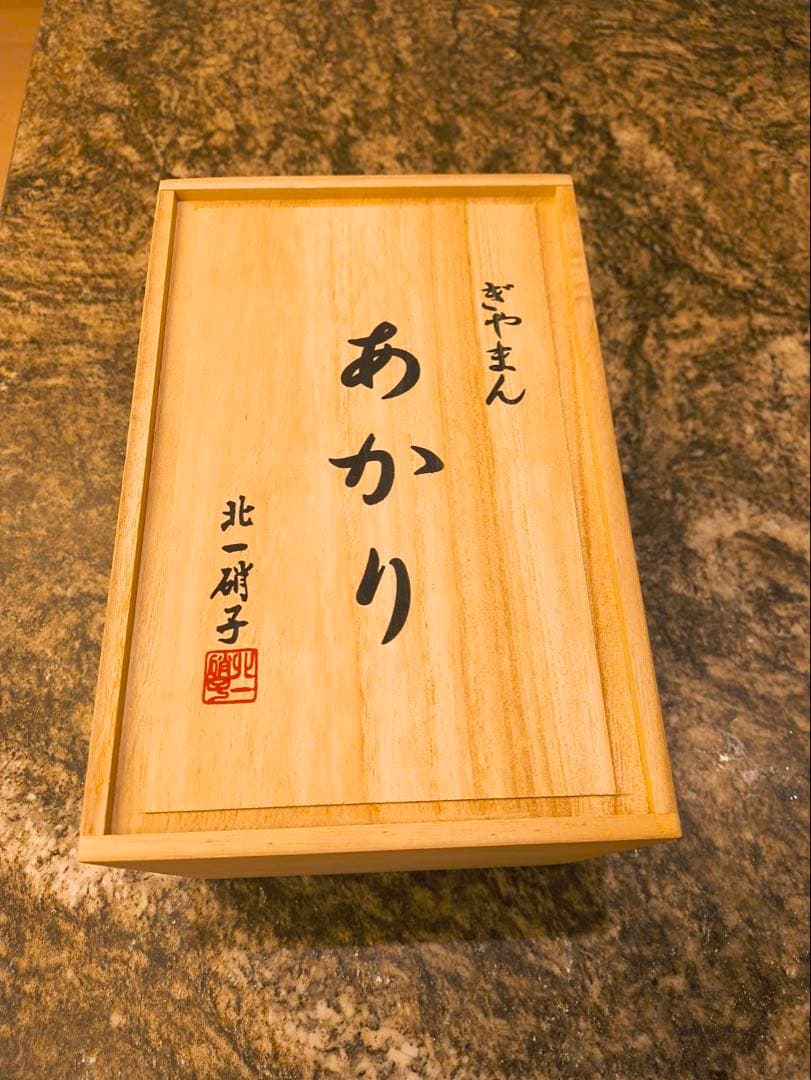 ぎやまん
あかり
北一硝子
北一硝子